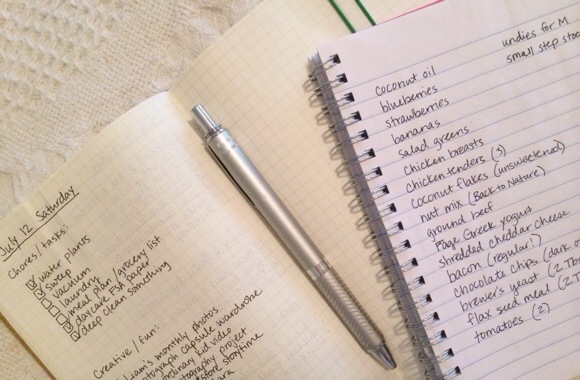 July 12 Saturday
Chores/tasks:
water plants
sweep
vacuum
laundry
meal plan/grocery list
daycare FSA paperwork
deep clean something
Creative/Fun:
monthly photos
capsule wardrobe
video
project
storytime
undies for M
small step
coconut oil
blueberries
strawberries
bananas
salad greens
chicken breasts
chicken tenders (5)
coconut flakes (unsweetened)
nut mix (Back to Nature)
ground beef
Fage Greek yogurt
shredded cheddar cheese
bacon (regular!)
chocolate chips (dark
brewer's yeast (2 Tbs
flax seed meal (2
tomatoes (2)